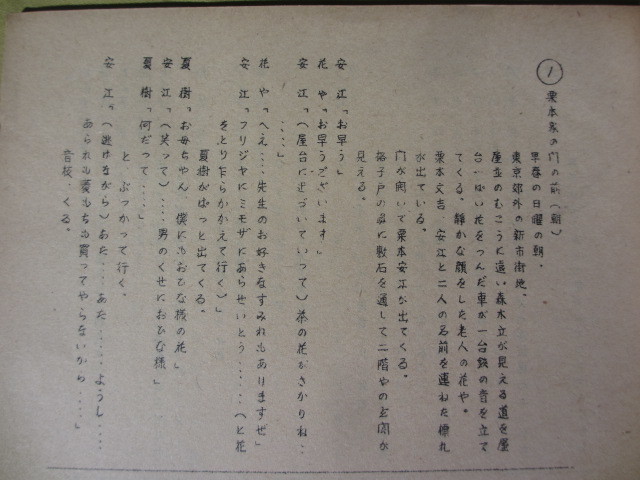 1 栗本家の門の前(朝)
早春の日曜の朝。
東京郊外の新市街地。
屋並のむこうに遠い森木立が見える道を屋
台いっぱい花をつんだ車が一台鋏の音を立て
てくる。静かな顔をした老人の花や。
栗本文吉、安江と二人の名前を連ねた標札
が出ている。
門が開いて栗本安江が出てくる。
格子戸の奥に敷石を通して二階やの玄関が
見える。
安 江「お早う」
花 や「お早うございます」
安 江「(屋台に近づいていって)茶の花がさかりね‥
‥‥」
花 や「へえ‥‥先生のお好きなすみれもありますぜ」
安 江「フリジヤにミモザにあらせいとう‥‥‥(と花
をとり乍らかかえて行く)」
夏樹がぱっと出てくる。
夏 樹「お母ちゃん、僕にもおひな様の花」
安 江「(笑って)‥‥男のくせにおひな様」
夏 樹「何だって‥‥」
と、ぶつかって行く。
安 江「(逃げながら)あた‥‥あた‥‥‥ようし‥‥
あられも菱もちも買ってやらないから‥‥」
音楽、くる。